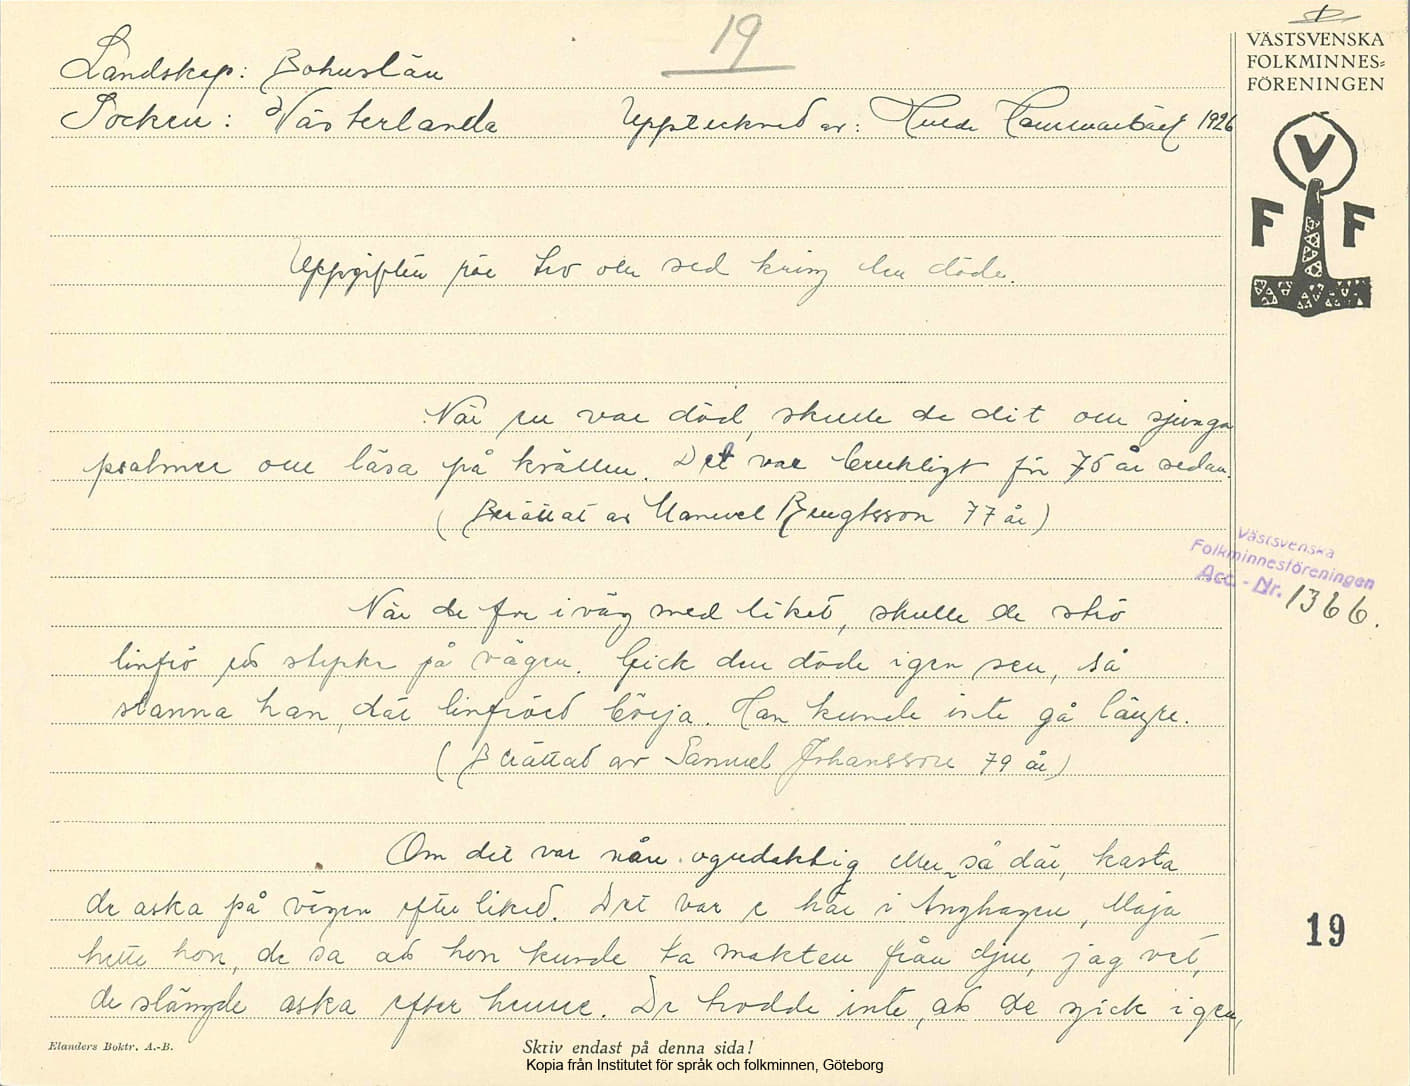 19
VÄSTSVENSKA
FOLKMINNES=
FÖRENINGEN
Landskap: Bohuslän
Socken: Västerlanda Upptecknad av: Hulda Hammarbäck 1926
V
F F
Uppgifter från tro och sed kring den döde.
När en var död, skulle de dit och sjunga
psalmer och läsa på kvällen. Det var brukligt för 75 år sedan.
(Berättat av Manuel Bengtsson 77 år)
Västsvenska
Folkminnesföreningen
Acc.-Nr. 1366.
När de for iväg med liket, skulle de strö
linfrö ett stycke på vägen. Gick den döde igen sen, så
stanna han, där linfröed börja. Han kunde inte gå längre.
(Berättad av Samuel Johansson 79 år)
Om det var nåen ogudaktig eller så där, kasta
de aska på vägen efter liked. Det var e här i Änghagen, Maja
hette hon, de sa att hon kunde ta makten från djur, jag vet,
de slängde aska efter henne. De trodde inte, att de gick igen,
19
Elanders Boktr. A.-B.
Skriv endast på denna sida!
Kopia från Institutet för språk och folkminnen, Göteborg